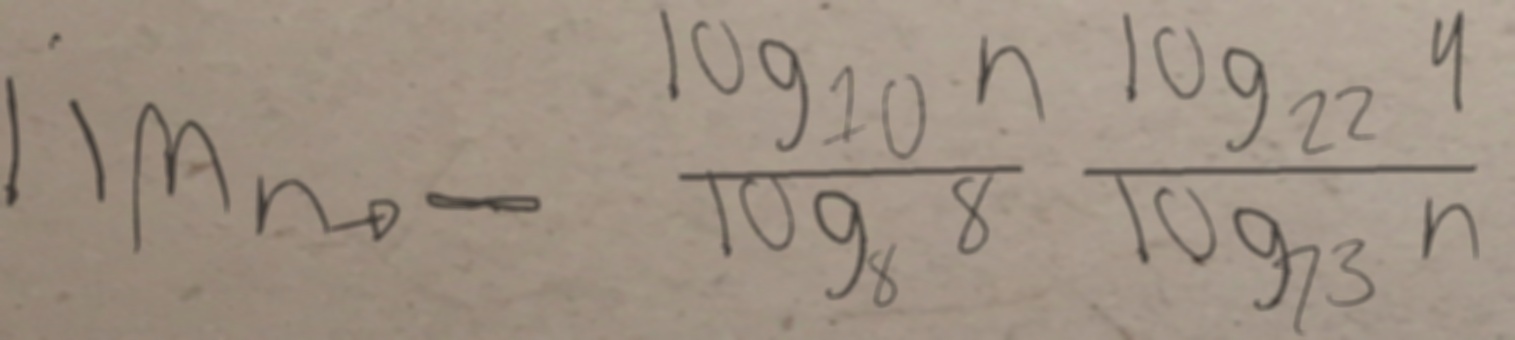 lim_{n→-} \frac{log_{10} n}{log_8 8} \frac{log_{22} 4}{log_{73} n}